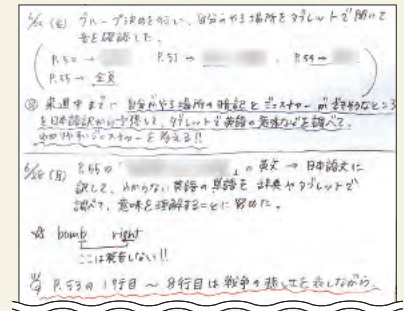 6/25(金) グループ決めを行い、自分がやる場所をタブレットで聞いて
音を確認した。
P.52 → P.53 → P.54 →
P.55 → 全員
来週中までに自分がやる場所の暗記とジェスチャーができそうなところ
を日本語訳から予想して、タブレットで英語の意味などを調べて、
わかりやすいジェスチャーを考える!!
6/28(月) P.55の「 」の英文 → 日本語文に
訳して、わからない英語の単語を辞典やタブレットで
調べて、意味を理解することに努めた。
☆ bomb right
ここは発音しない!!
P.53の1行目 〜 8行目は戦争の悲しさを表しながら、